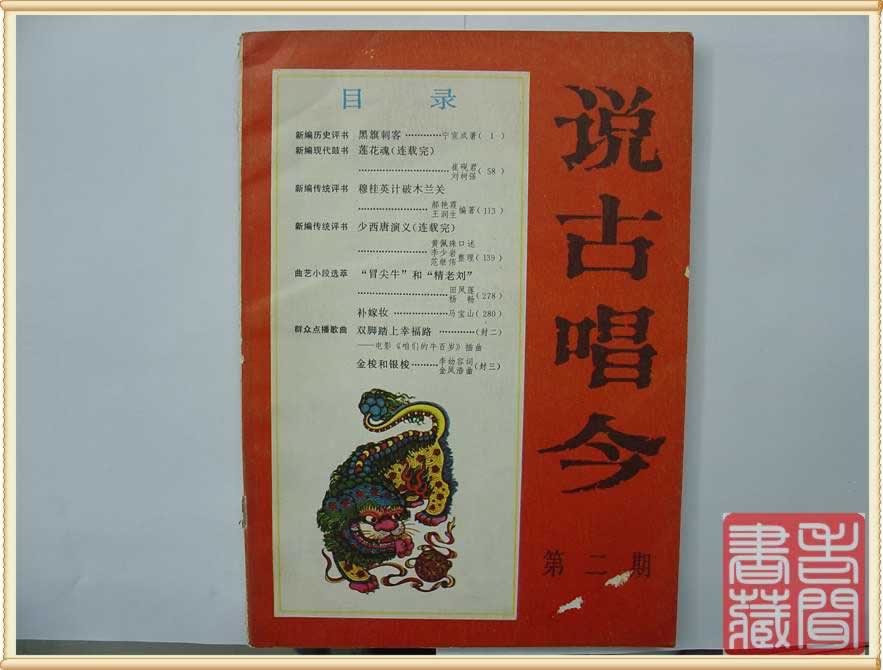 目 录
新编历史评书 黑旗刺客 …………宁宣成著( 1 )
新编现代鼓书 莲花魂(连载完)
…………………………崔砚君
刘树强( 58 )
新编传统评书 穆桂英计破木兰关
…………………郝艳霞
王润生编著(113)
新编传统评书 少西唐演义(连载完)
黄佩珠口述
…………………李少岩
范继伟整理(139)
曲艺小段选萃 “冒尖牛”和“精老刘”
…………………………田凤莲
杨 畅(278)
补嫁妆 ………………马宝山(280)
群众点播歌曲 双脚踏上幸福路 …………(封二)
——电影《咱们的牛百岁》插曲
金梭和银梭………李幼容词
金凤浩曲(封三)
说古唱今
第二期
書藏